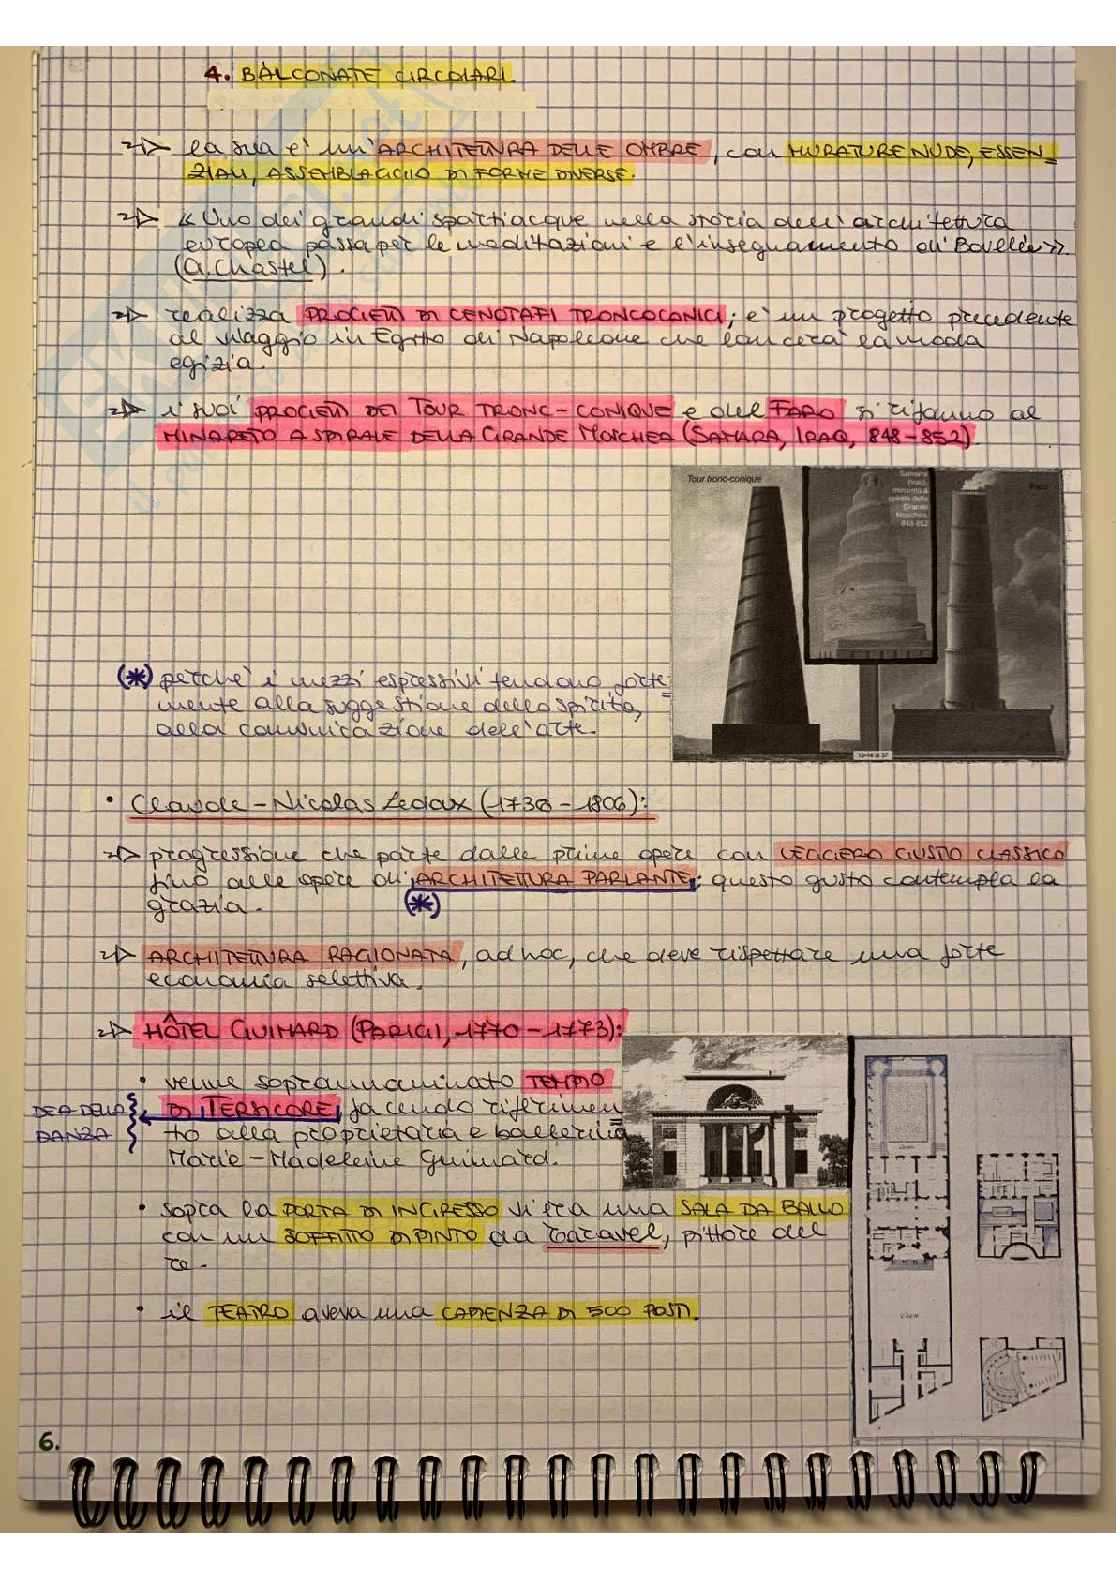 4. BALCONATE CIRCOLARI.
la sua e' un'ARCHITETTURA DELLE OMBRE, con MURATURE NUDE, ESSEN=
ZIALI, ASSEMBLAGGIO DI FORME DIVERSE.
«Uno dei grandi spartiacque nella storia dell'architettura
europea passa per le meditazioni e l'insegnamento di Boullée».
(A. Chastel).
realizza PROGETTI DI CENOTAFI TRONCOCONICI; e' un progetto precedente
al viaggio in Egitto di Napoleone che lancera' la moda
egizia.
i suoi PROGETTI DEI TOUR TRONC-CONIQUE e del FARO si rifanno al
MINARETO A SPIRALE DELLA GRANDE MOSCHEA (SAMARA, IRAQ, 848-852).
Tour tronc-conique
Samara
(Iraq),
minareto a
spirale della
Grande
Moschea,
848-852
(*) perche' i mezzi espressivi tendono forte=
mente alla suggestione dello spirito,
alla comunicazione dell'arte.
• Claude-Nicolas Ledoux (1736-1806):
progressione che parte dalle prime opere con LEGGERO GUSTO CLASSICO
fino alle opere di ARCHITETTURA PARLANTE; questo gusto contempla la
grazia. (*)
ARCHITETTURA RAGIONATA, ad hoc, che deve rispettare una forte
economia selettiva.
HÔTEL GUIMARD (PARIGI, 1770-1773):
• venne soprannominato TEMPIO
DEA DELLA DI TERSICORE, facendo riferimen
DANZA =to alla proprietaria e ballerina
Marie-Madeleine Guimard.
• sopra la PORTA DI INGRESSO vi era una SALA DA BALLO
con un SOFFITTO DIPINTO da Taravel, pittore del
re.
• il TEATRO aveva una CAPIENZA DI 500 POSTI.
6.